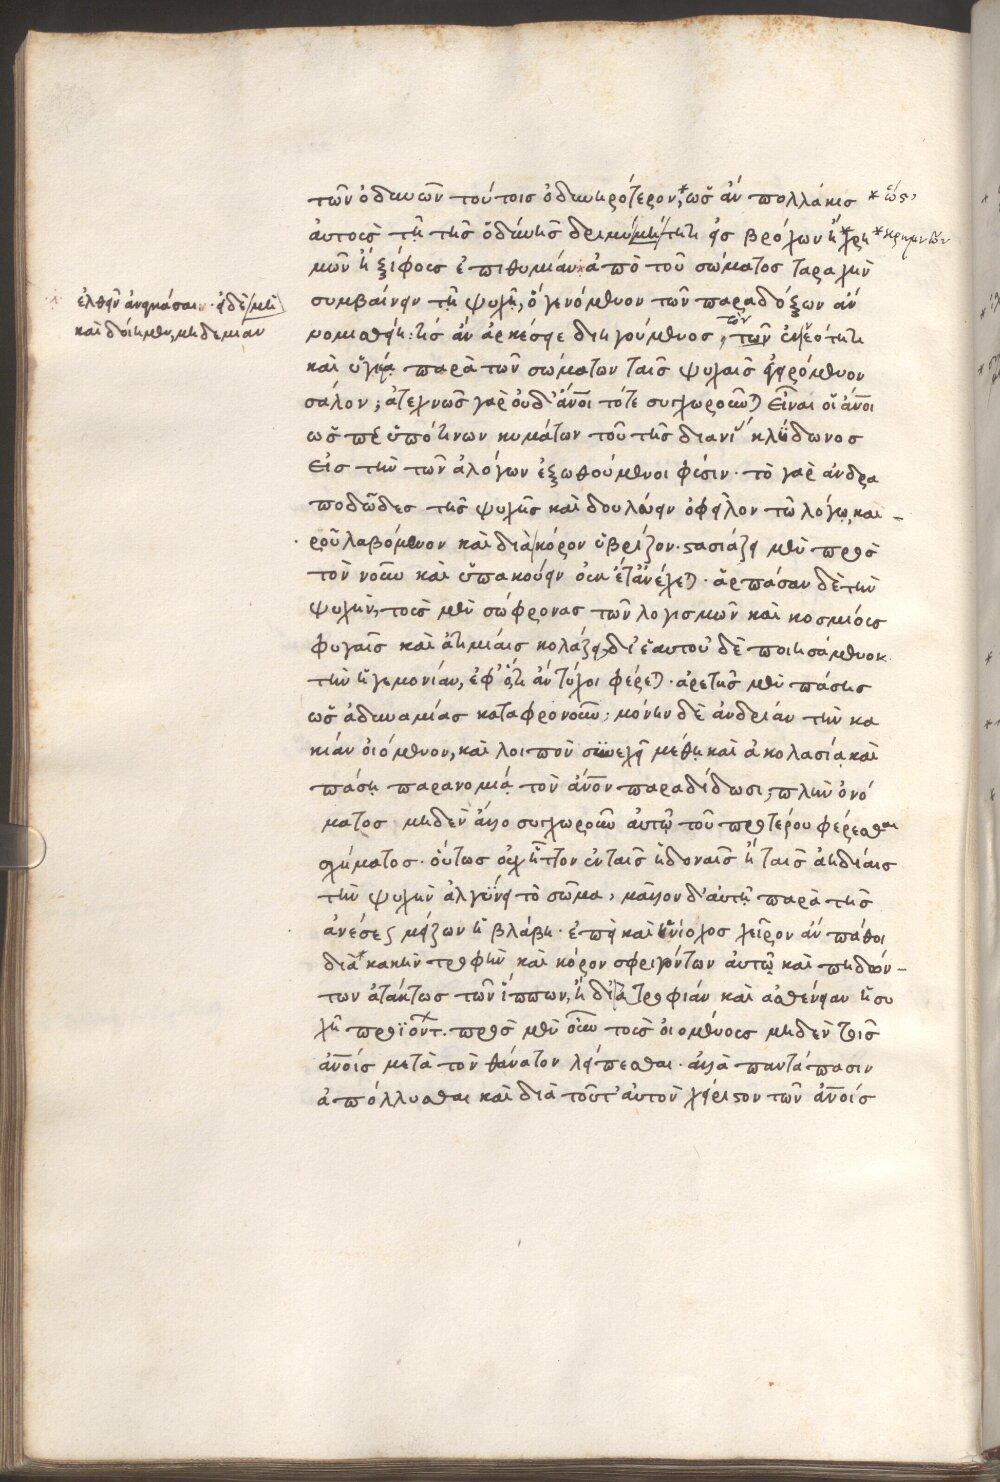 τῶν ὀδυνῶν τούτοις ὀδυνηρότερον,* ὡς ἂν πολλάκις * ὥς,
ἀυτοῖς τῇ τῆς ὀδύνης δριμύτητι εἰς βρόχων ἢ * * κρημνῶν
μῶν ἢ ξίφοις ἐπιθυμίαν ἀπὸ τοῦ σώματος ταραχὴν
ἐλθεῖν ἀναγκάσαι · εἰ δὲ μὴ
καὶ δοίημεν, μηδεμίαν
συμβαίνειν τῇ ψυχῇ, ὃ γενόμενον τῶν παραδόξων ἂν
νομισθείη: τίς ἂν ἀρκέσειε διηγούμενος, τὸν τῶν ἐν νεότητι
καὶ ὑγείᾳ παρὰ τῶν σωμάτων ταῖς ψυχαῖς ἐπιφερόμενον
σάλον; ἀτεχνῶς γὰρ οὐδ' ἄνοι τότε συγχωροῦν) εἶναι οἱ ἄνοι
ὥσπερ ὑπό τινων κυμάτων τοῦ τῆς διανι κλύδωνος
εἰς τὴν τῶν ἀλόγων ἐξωθούμενοι φύσιν · τὸ γὰρ ἀνδρα
ποδῶδες τῆς ψυχῆς καὶ δουλεύειν ὀφεῖλον τῷ λόγῳ, και -
ροῦ λαβόμενον καὶ διὰ κόρον ὑβρίζον · στασιάζει μὲν πρὸς
τὸν νοῦν καὶ ὑπακούειν οὐκ ἔτ' ἀνέχε) · ἁρπάσαν δὲ τὴν
ψυχὴν, τοὺς μὲν σώφρονας τῶν λογισμῶν καὶ κοσμίους
φυγαῖς καὶ ἀτιμίαις κολάζει, δι' ἑαυτοῦ δὲ ποιησάμενον
τὴν ἡγεμονίαν, ἐφ' ὅ,τι ἂν τύχοι φέρε) · ἀρετῆς μὲν πάσης
ὡς ἀδυναμίας καταφρονοῦν, μόνην δὲ ἀνδρίαν τὴν κα
κίαν οἰόμενον, καὶ λοιπὸν συνεχεῖ μέθῃ καὶ ἀκολασίᾳ καὶ
πάσῃ παρανομίᾳ τὸν ἄνον παραδίδωσι, πλὴν ὀνό
ματος μηδὲν ἄλλο συγχωροῦν αὐτῷ τοῦ προτέρου φέρεσθαι
σχήματος · οὕτως οὐχ ἧττον ἐν ταῖς ἡδοναῖς ἢ ταῖς ἀηδίαις
τὴν ψυχὴν ἀλγύνει τὸ σῶμα, μᾶλλον δ' αὐτῇ παρὰ τῆς
ἀνέσεως μείζων ἡ βλάβη · ἐπεὶ καὶ ἡνίοχος χεῖρον ἂν πάθοι
διὰ κακὴν τροφὴν καὶ κόρον σφριγόντων αὐτῷ καὶ πηδών -
των ἀτάκτως τῶν ἵππων, ἢ δι' ἀτροφίαν καὶ ἀσθένειαν ἡσυ
χῇ προϊόντ. πρὸς μὲν οὖν τοὺς οἰομένους μηδὲν τοῖς
ἀνοίς μετὰ τὸν θάνατον λείπεσθαι · ἀλλὰ παντάπασιν
ἀπόλλυσθαι καὶ διὰ τοῦτ' αὐτὸν χείριστον τῶν ἀνοίς